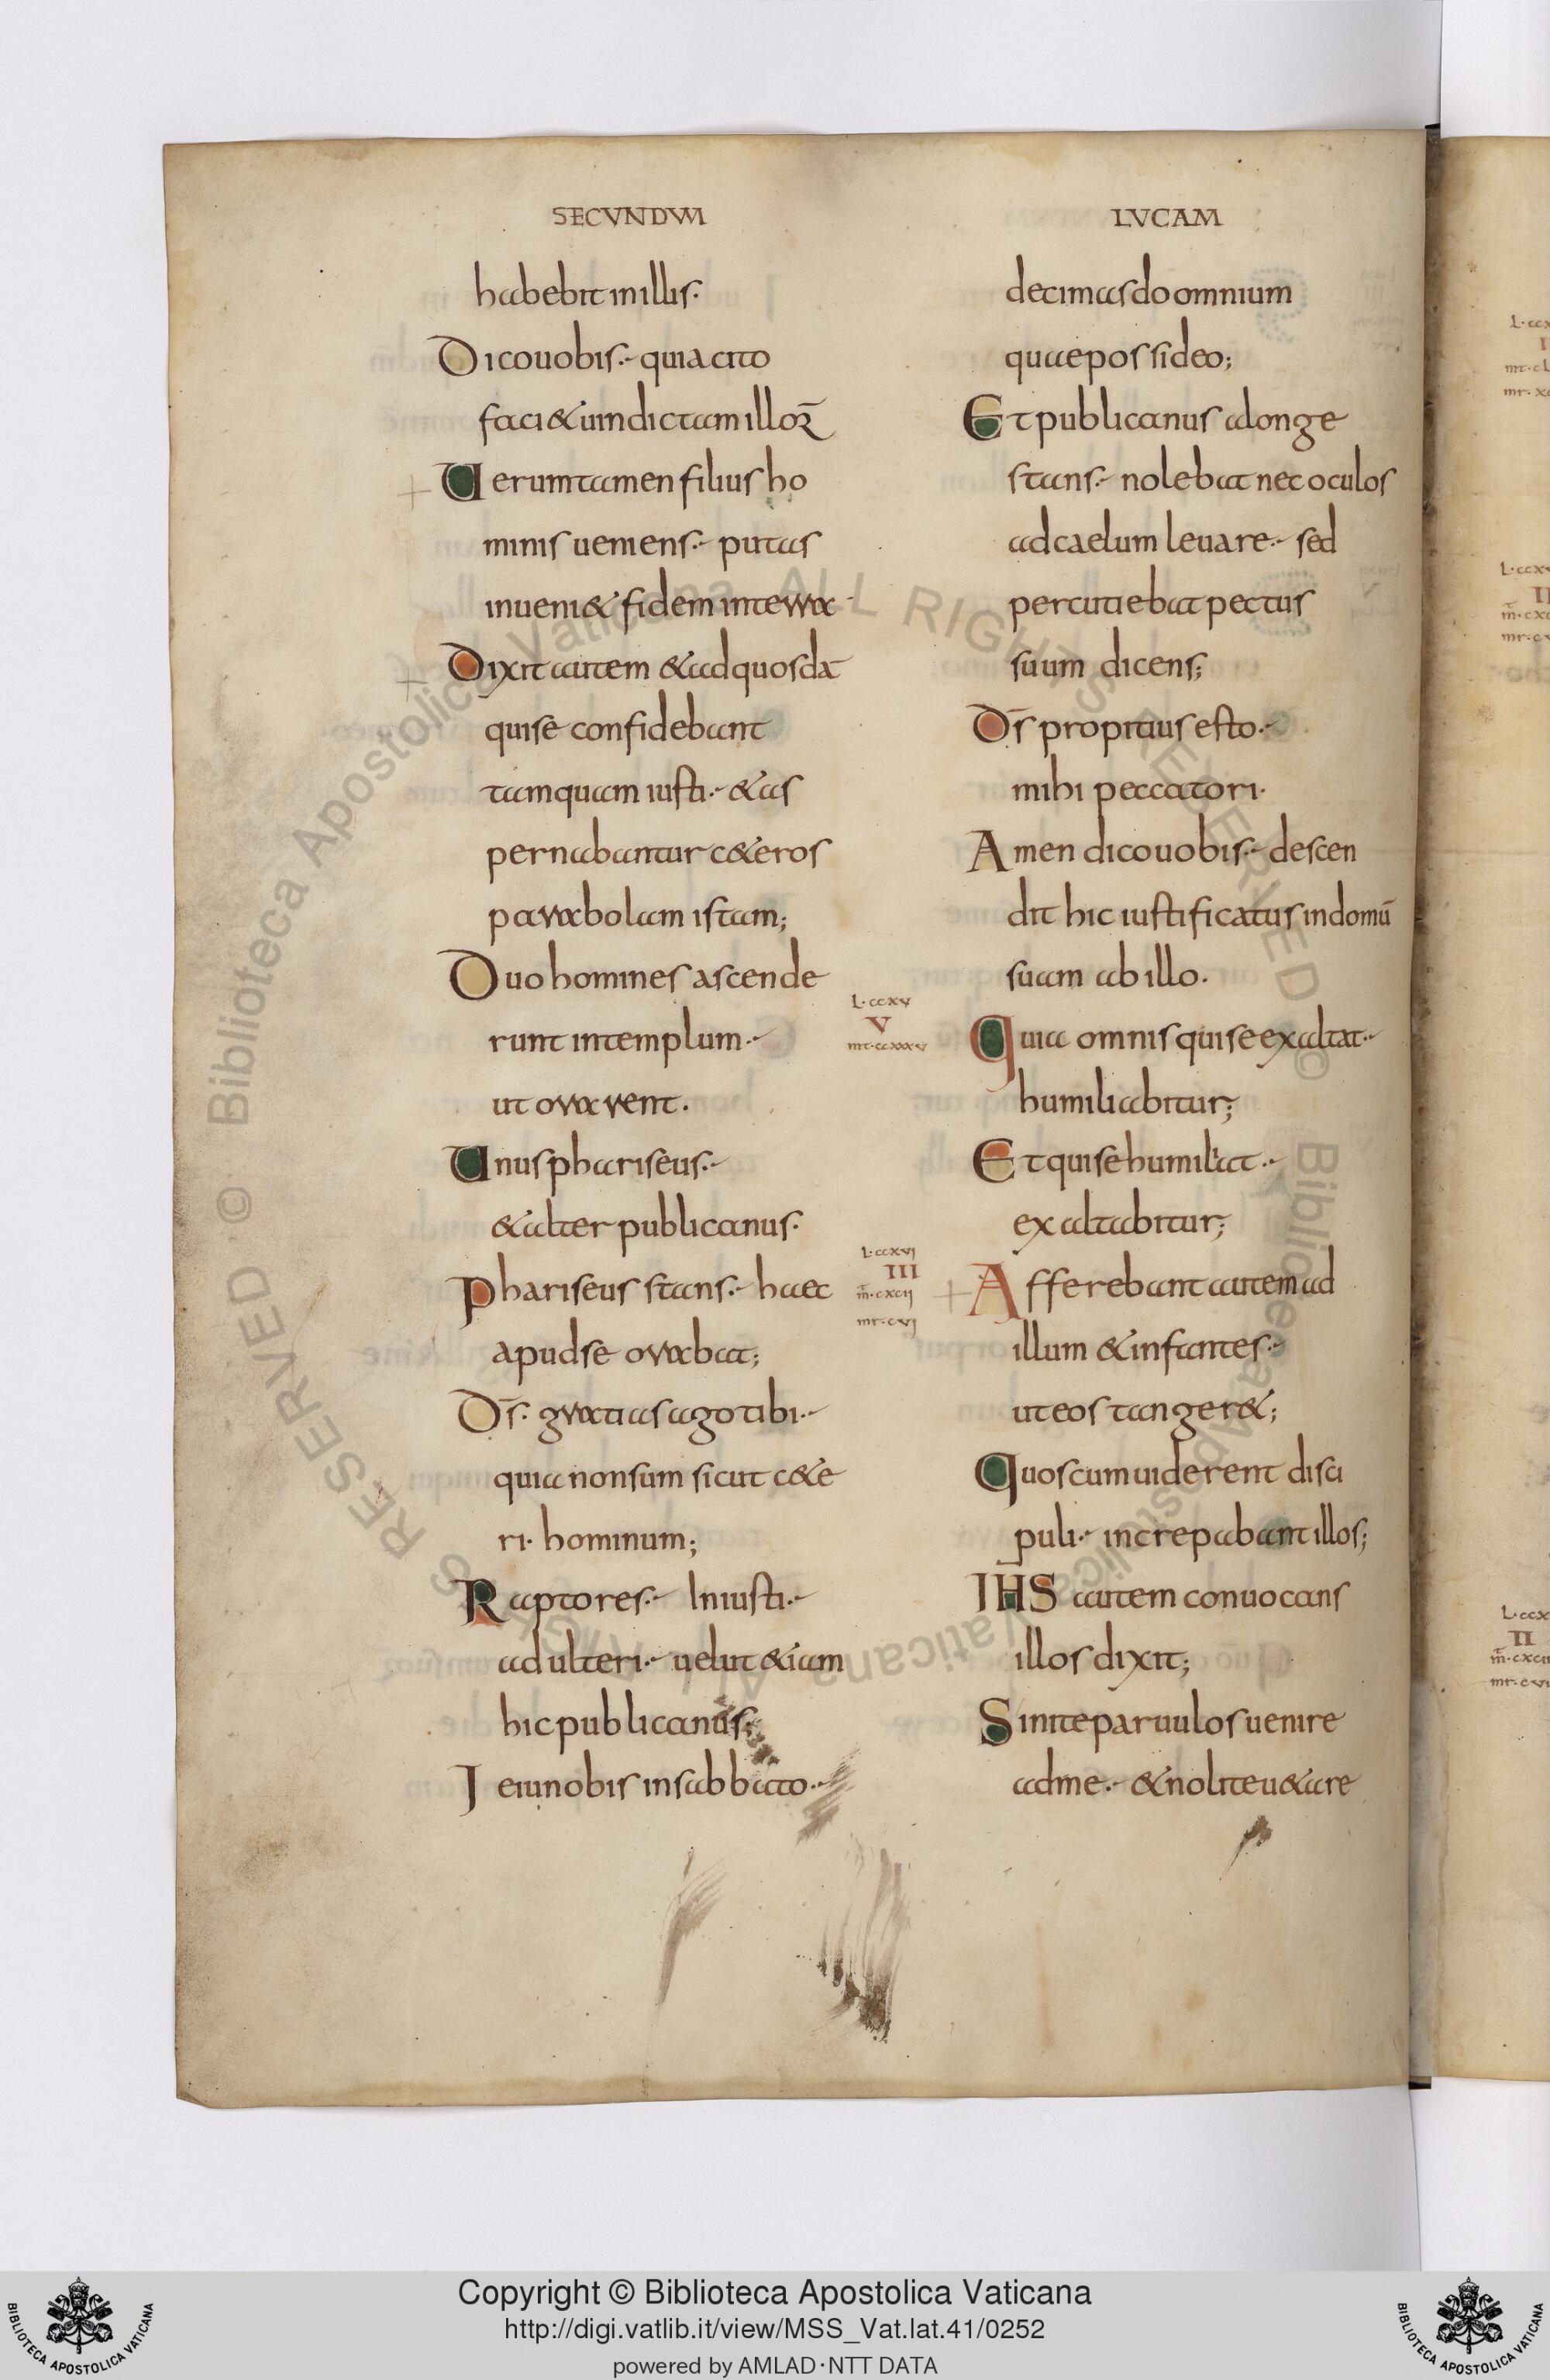 SECVNDVM
habebit in illis.
Dico uobis. quia cito
faci& uindictam illoꝝ
Uerumtamen filius ho
minis ueniens. putas
inueni& fidem in terra
Dixit autem & ad quosdā
qui se confidebant
tamquam iusti. & as
pernabantur c&eros
parabolam istam;
Duo homines ascende
runt in templum.
ut orarent.
Unus phariseus.
& alter publicanus.
Phariseus stans. haec
apud se orabat;
D̄s. gratias ago tibi.
quia non sum sicut c&e
ri. hominum;
Raptores. Iniusti.
adulteri. uelut &iam
hic publicanus;
Ieiuno bis in sabbato.
L·ccxv
V
mt·ccxxxv
L·ccxvi
III
m̄·cxcij
mr·cvj
LVCAM
decimas do omnium
quae possideo;
Et publicanus a longe
stans. nolebat nec oculos
ad caelum leuare. sed
percutiebat pectus
suum dicens;
D̄s propitius esto.
mihi peccatori.
Amen dico uobis. descen
dit hic iustificatus in domū
suam ab illo.
Quia omnis qui se exaltat.
humiliabitur;
Et qui se humiliat.
exaltabitur;
Afferebant autem ad
illum & infantes.
ut eos tanger&;
Quos cum uiderent disci
puli. increpabant illos;
IH̄S autem conuocans
illos dixit;
Sinite paruulos uenire
ad me. & nolite u&are
Copyright © Biblioteca Apostolica Vaticana
http://digi.vatlib.it/view/MSS_Vat.lat.41/0252
powered by AMLAD·NTT DATA
BIBLIOTECA APOSTOLICA VATICANA
BIBLIOTECA APOSTOLICA VATICANA